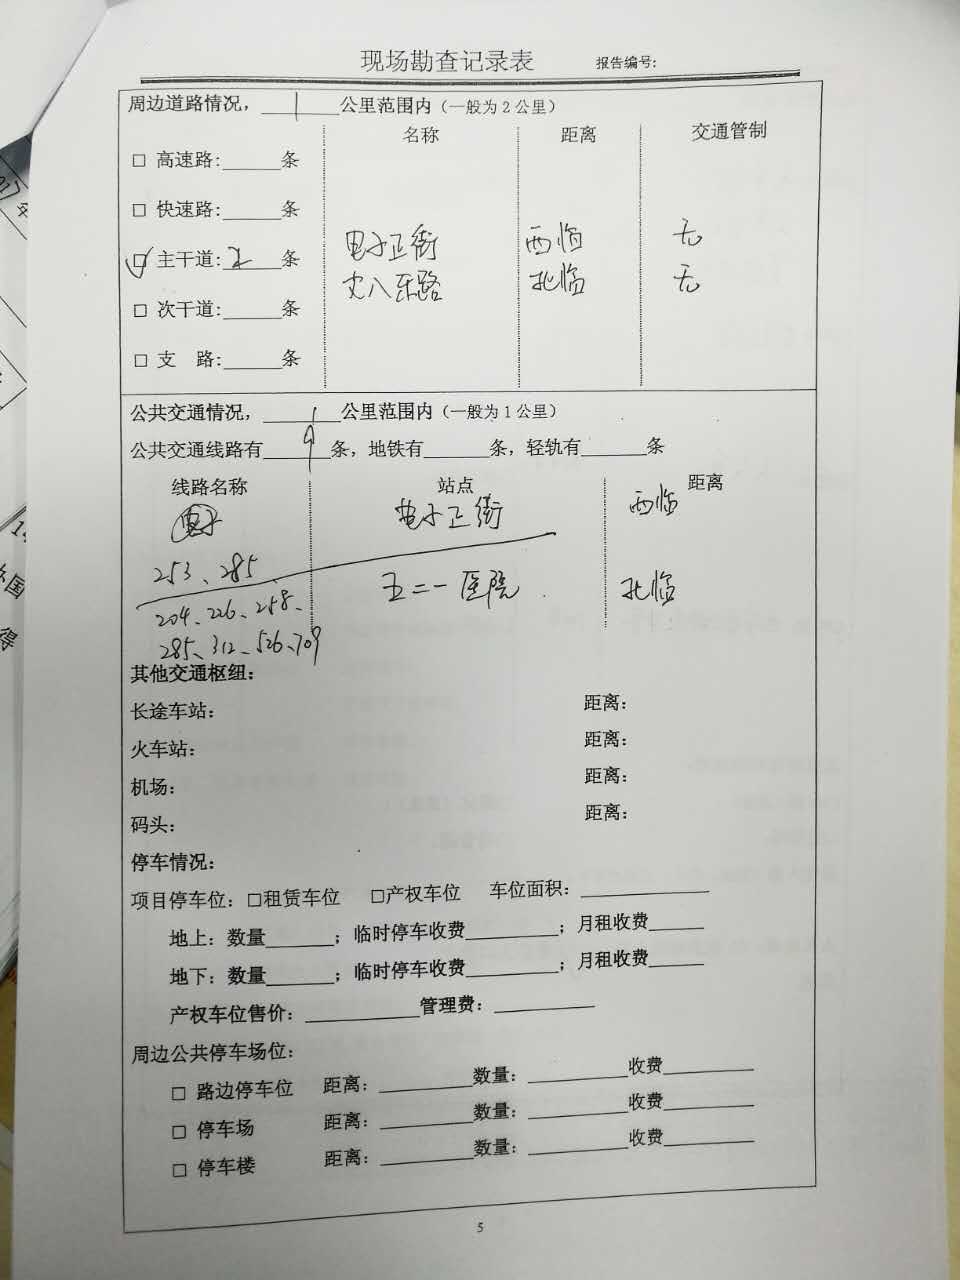 现场勘查记录表 报告编号:
周边道路情况，1公里范围内（一般为2公里）
名称 距离 交通管制
□ 高速路:______条
□ 快速路:______条
电子正街 西临 无
☑ 主干道:2条
丈八东路 北临 无
□ 次干道:______条
□ 支 路:______条
公共交通情况，1公里范围内（一般为1公里）
公共交通线路有9条，地铁有______条，轻轨有______条
线路名称 站点 距离
电子正街 西临
253、285
五二一医院 北临
204、226、258、
285、312、526、709
其他交通枢纽：
长途车站： 距离：
火车站： 距离：
机场： 距离：
码头： 距离：
停车情况：
项目停车位：□租赁车位 □产权车位 车位面积：____________
地上：数量______；临时停车收费________；月租收费_____
地下：数量______；临时停车收费________；月租收费_____
产权车位售价：__________管理费：_________
周边公共停车场位：
□ 路边停车位 距离：________数量：________收费________
□ 停车场 距离：________数量：________收费________
□ 停车楼 距离：________数量：________收费________
5